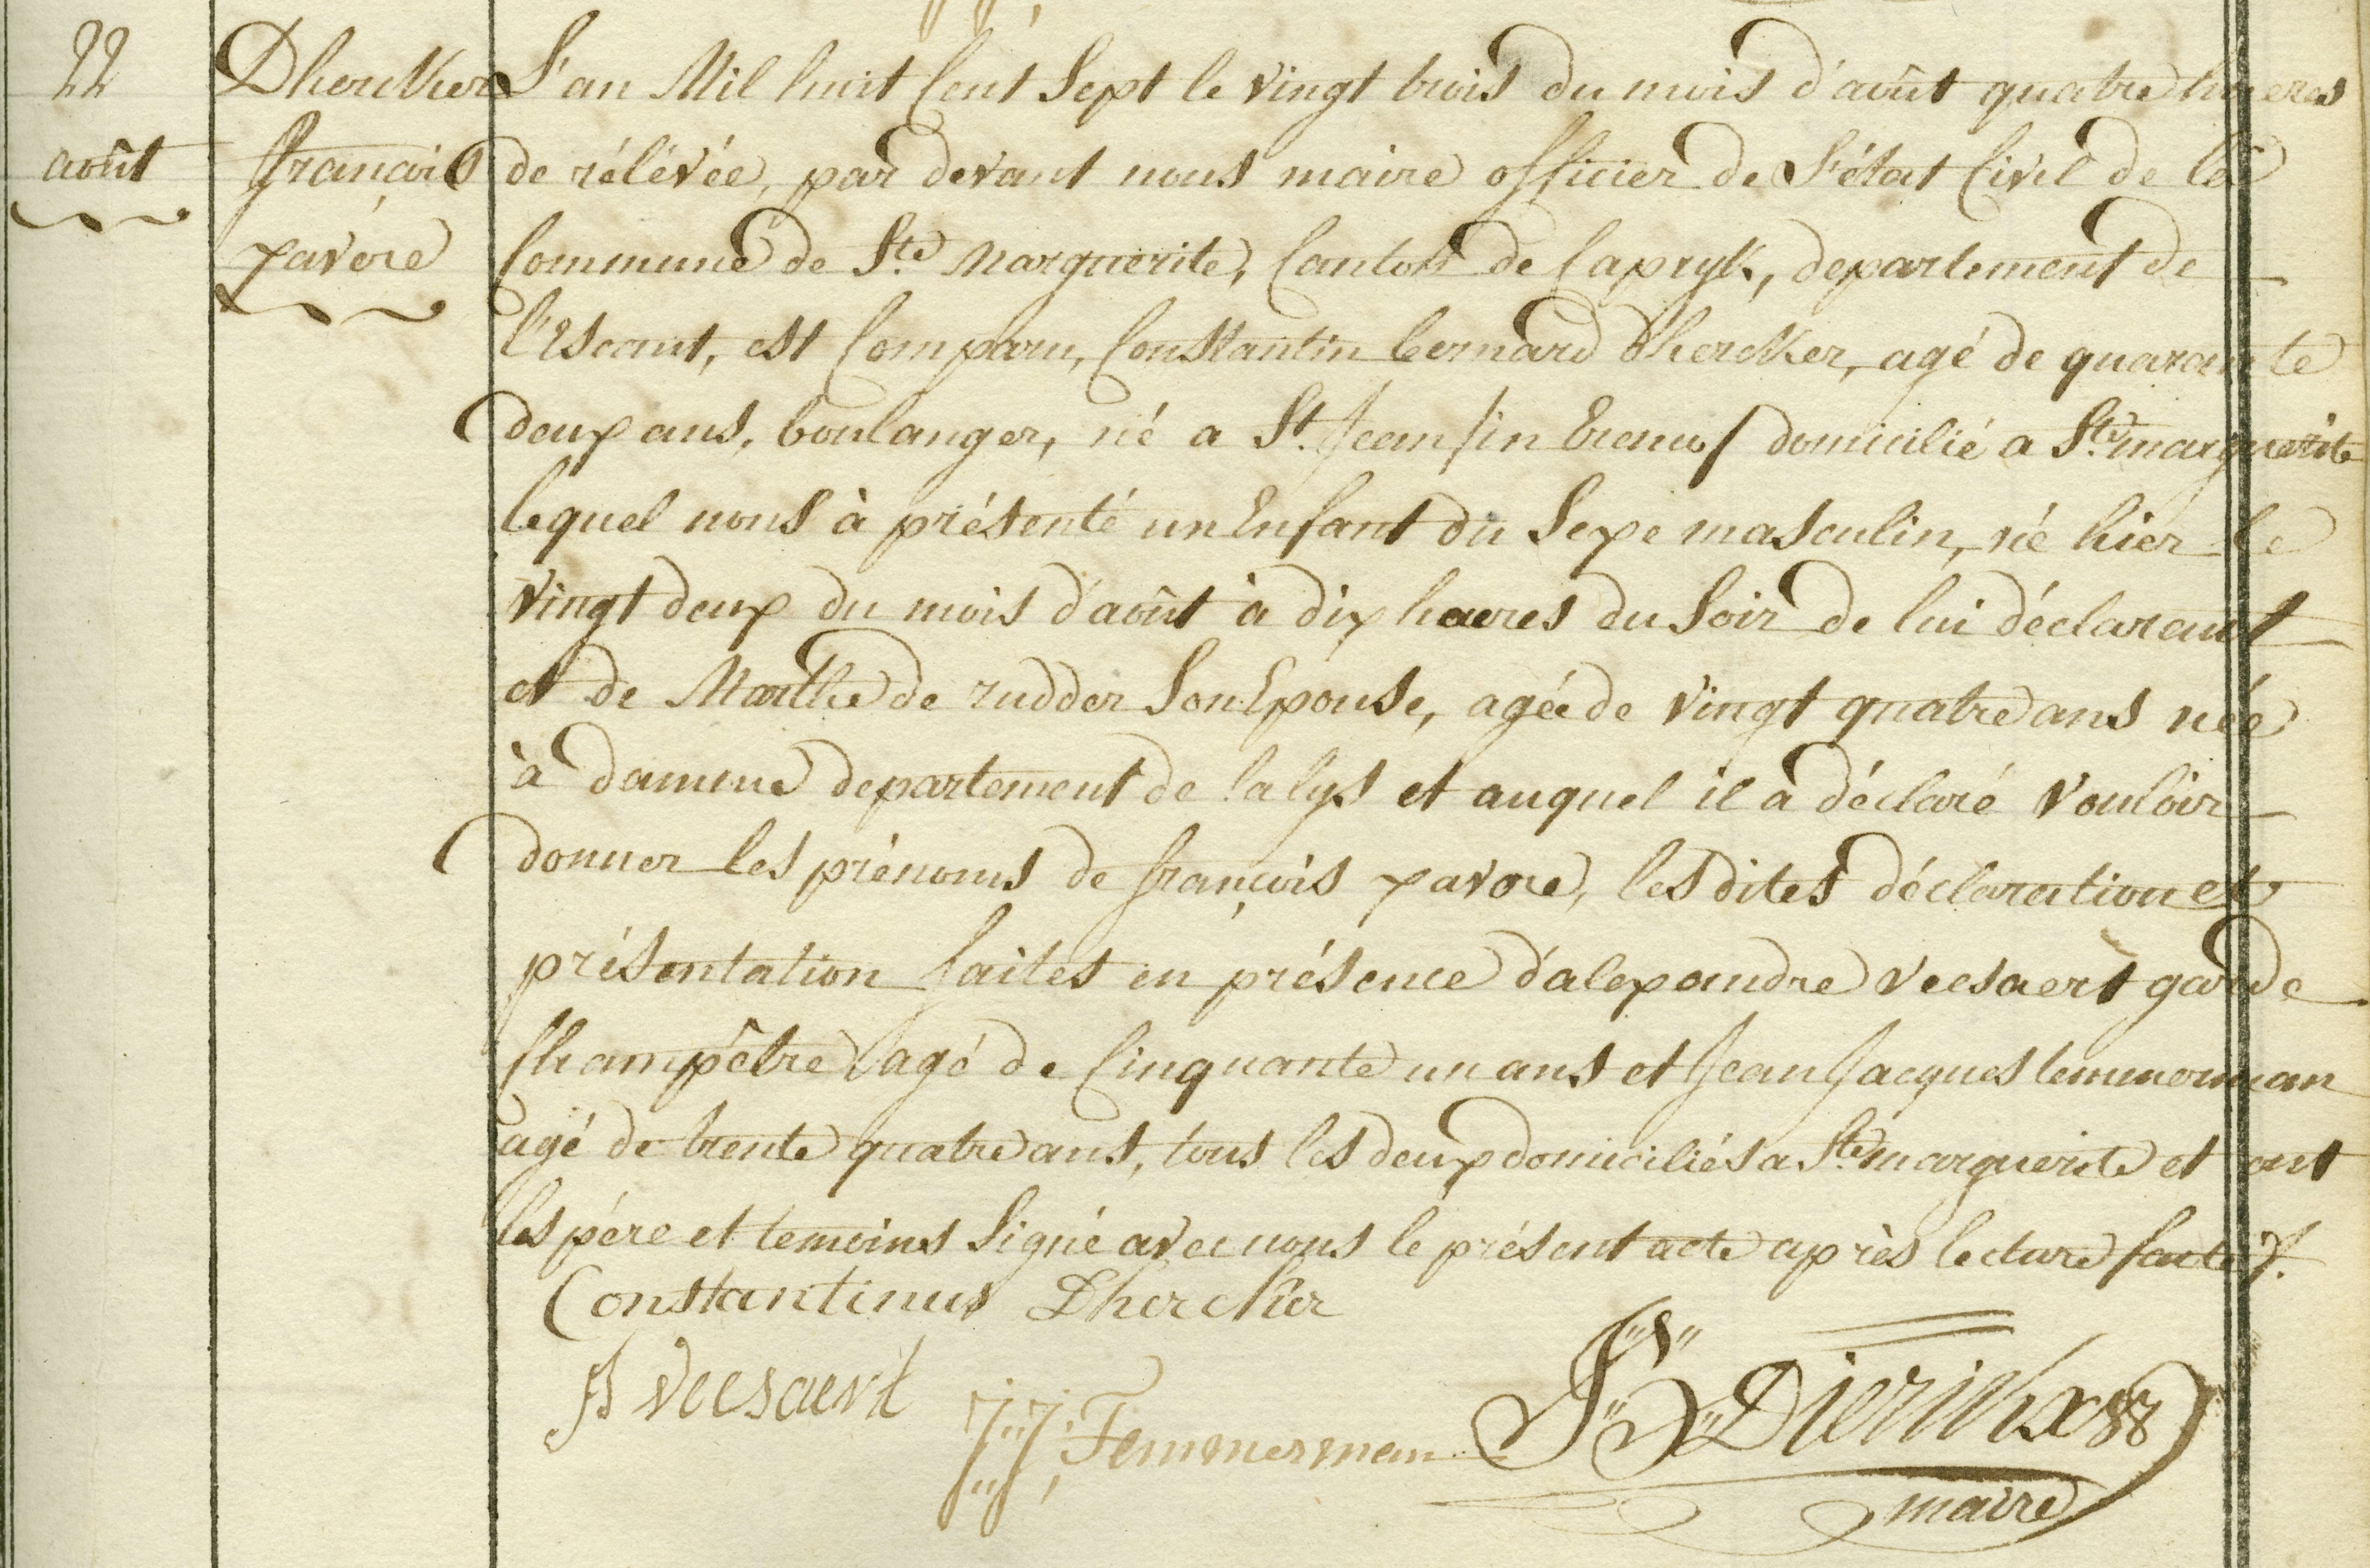 22
août
Dhercker
françois
xavere
L'an Mil huit Cent Sept le vingt trois du mois d'août quatre heures
de rélévée, par devant nous maire officier de L'état Civil de la
Commune de Ste Marguerite, Canton de Capryk, departement de
l'Escaut, est Comparu, Constantin bernard Dhercker, agé de quarante
deux ans, boulanger, né a St. Jean /in Eremo/ domicilié a Ste marguerite
lequel nous à présenté un Enfant du Sexe masculin, né hier le
vingt deux du mois d'août à dix haeres du Soir de lui déclarant
et de Marthe de rudder Son Epouse, agée de vingt quatre ans née
à damme departement de la lys et auquel il a déclaré vouloir
donner les prénoms de françois xavere, les dites déclaration et
présentation faites en présence d'alexandre veesaert garde
Champêtre agé de Cinquante un ans et Jean Jacques temmerman
agé de trente quatre ans, tous les deux domiciliés a Ste marguerite et ont
les pére et temoins Signé avec nous le présent acte après lecture faite ./.
Constantinus Dhercker
veesaert
J: J: Temmerman
Dierickx
maire